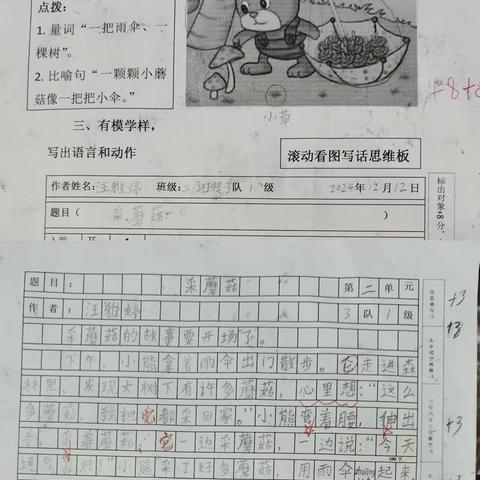 点拨：
1. 量词“一把雨伞、一
棵树”。
2. 比喻句“一颗颗小蘑
菇像一把把小伞。”
小草
+8+8
三、有模学样，
写出语言和动作
滚动看图写话思维板
作者姓名：汪雅婷 班级：二 3队1级 2024年12月12日
题目（ 采蘑菇 ）
标出对象+8分，
题目： 采蘑菇 第二单元
作者： 汪雅婷 3队1级
采蘑菇的故事要开场了。
下午，小熊拿着雨伞出门散步。它走进森
林里，发现大树下有许多蘑菇，心里想：“这么
多蘑菇，我把它都采回家。”小熊弯着腰，伸出
手，采蘑菇，它一边采蘑菇，一边说：“今天
真 ！”小熊采了好多蘑菇，用雨伞 起来，
+3
+3
+3
+3